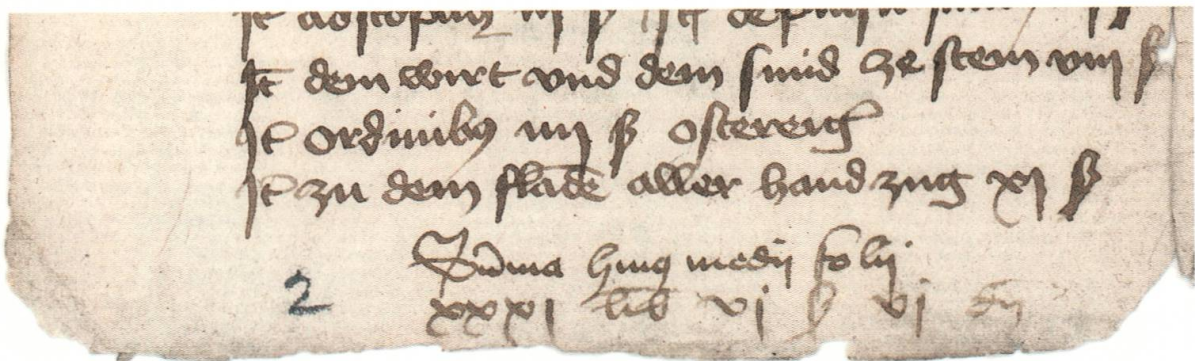 It dem wirt vnd dem smid ze stein viij ß
It ordinibus iiij ß osterreich
It zu dem flade aller hand zug xj ß
Suma huius medij folij
2
xxxj lib vj ß vj dn